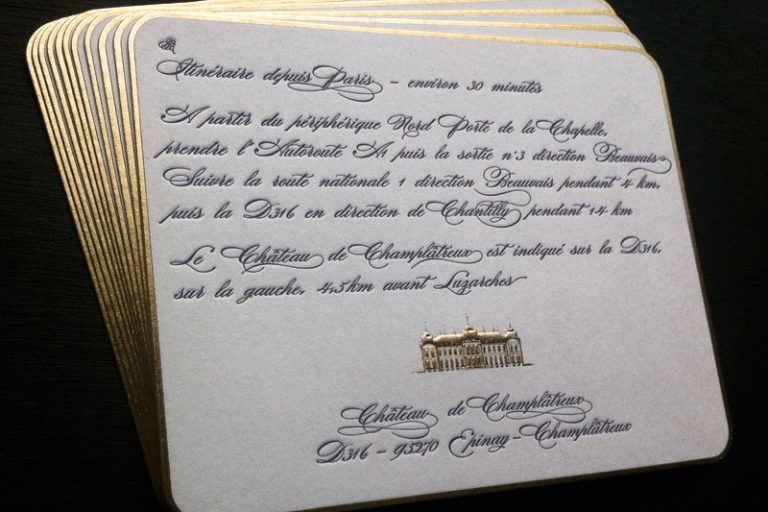 Itinéraire depuis Paris - environ 30 minutes
A partir du périphérique Nord Porte de la Chapelle,
prendre l'Autoroute A1 puis la sortie n°3 direction Beauvais
Suivre la route nationale 1 direction Beauvais pendant 4 km,
puis la D316 en direction de Chantilly pendant 14 km
Le Château de Champlâtreux est indiqué sur la D316,
sur la gauche, 4,5km avant Luzarches
Château de Champlâtreux
D316 - 95270 Epinay-Champlâtreux